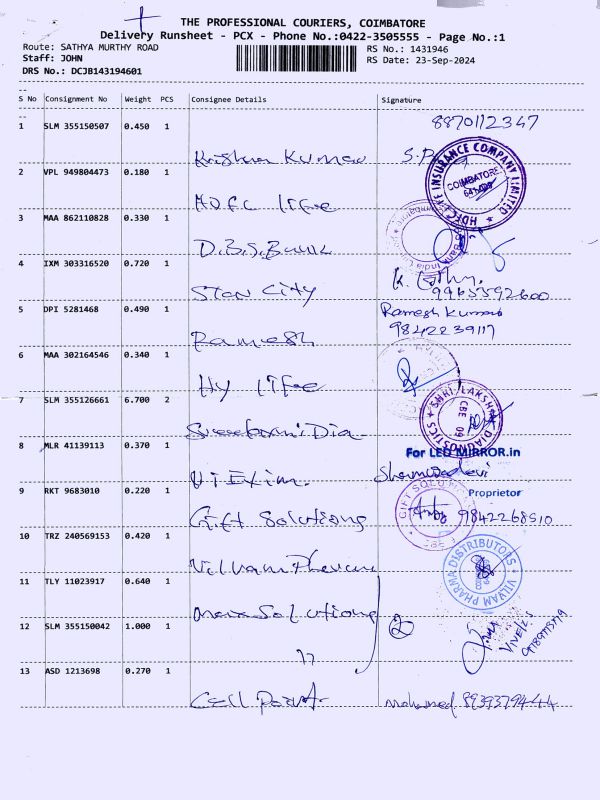 THE PROFESSIONAL COURIERS, COIMBATORE
Delivery Runsheet - PCX - Phone No.:0422-3505555 - Page No.:1
Route: SATHYA MURTHY ROAD
RS No.: 1431946
Staff: JOHN
RS Date: 23-Sep-2024
DRS No.: DCJB143194601
S No Consignment No Weight PCS Consignee Details Signature
1 SLM 355150507 0.450 1 Krishna Kumar 8870112347
2 VPL 949804473 0.180 1 HDFC life
HDFC LIFE INSURANCE COMPANY LIMITED
COIMBATORE
3 MAA 862110828 0.330 1 D.B.S. Bank
4 IXM 303316520 0.720 1 Star City
5 DPI 5281468 0.490 1 Ramesh Ramesh Kumar
9842239117
6 MAA 302164546 0.340 1 Hy life
7 SLM 355126661 6.700 2
SHRI LAKSHMI DIAGNOSTICS
CBE 09
8 MLR 41139113 0.370 1
For LED MIRROR.in
Proprietor
9 RKT 9683010 0.220 1 Gift Solutions
GIFT SOLU
9842268510
10 TRZ 240569153 0.420 1
VILVAM PHARMA DISTRIBUTORS
11 TLY 11023917 0.640 1 Solutions
12 SLM 355150042 1.000 1 "
13 ASD 1213698 0.270 1 Cell Point Mohamed